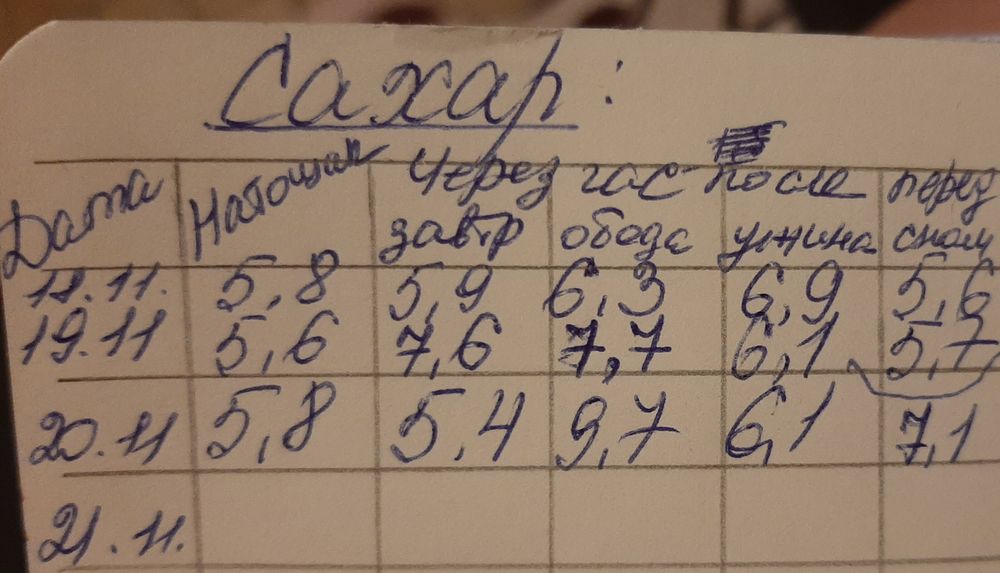 Сахар:
Дата Натощак Через час после перед
завтр обеда ужина сном
18.11. 5,8 5,9 6,3 6,9 5,6
19.11 5,6 7,6 7,7 6,1 5,7
20.11 5,8 5,4 9,7 6,1 7,1
21.11.